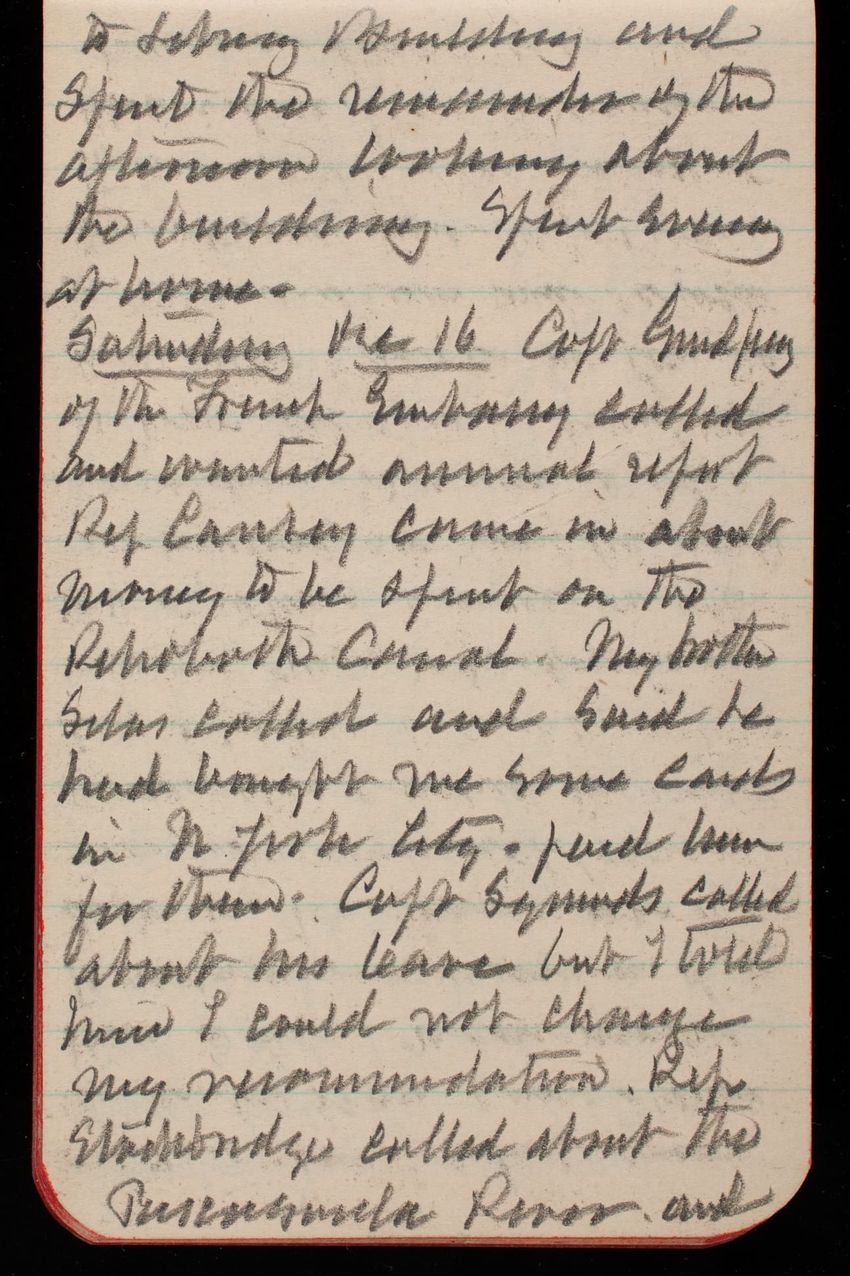 to Library Building and
Spent the remainder of the
afternoon looking about
the building. Spent Evening
at home.
Saturday Dec 16 Capt
of the French Embassy called
and wanted annual report
Rep Causey came in about
money to be spent on the
Rehoboth Canal. My brother
Silas called and said he
had bought me some cards
in N York City. paid him
for them. Capt Symonds called
about his leave but I told
him I could not change
my recommendation. Rep
Stockbridge called about the
Pascagoula River and